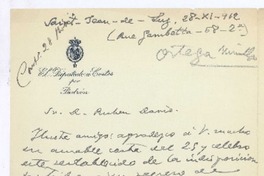 Saint-Jean-de-Luz. 28-XI-912
(Rue Gambetta-58-2º)
Ortega Munilla
El Diputado a Cortes
por
Padrón
Sr. D. Ruben Darío.
Ilustre amigo: agradezco a V. mucho
su amable carta del 25 y celebro
este restablecido de la indisposicion